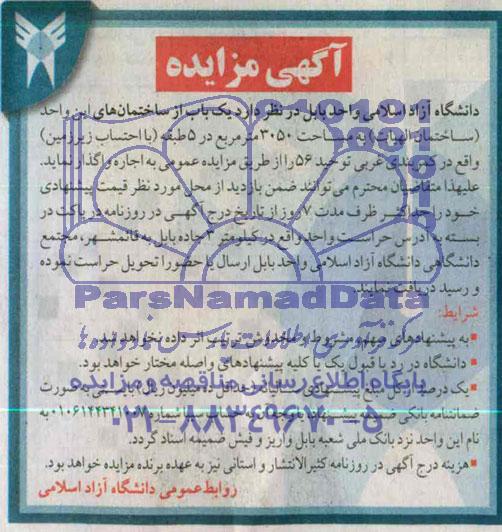 آگهی مزایده
دانشگاه آزاد اسلامی واحد بابل در نظر دارد یک باب از ساختمان‌های این واحد
(ساختمان الهیات) به مساحت ۳۰۵۰ مترمربع در ۵ طبقه (با احتساب زیرزمین)
واقع در کمربندی غربی توحید ۵۶ را از طریق مزایده عمومی به اجاره واگذار نماید.
علیهذا متقاضیان محترم می‌توانند ضمن بازدید از محل مورد نظر قیمت پیشنهادی
خود را حداکثر ظرف مدت ۷ روز از تاریخ درج آگهی در روزنامه در پاکت در
بسته به آدرس حراست واحد واقع در کیلومتر ۳ جاده بابل به قائمشهر، مجتمع
دانشگاهی دانشگاه آزاد اسلامی واحد بابل ارسال یا حضورا تحویل حراست نموده
و رسید دریافت نمایند.
ParsNamadData
شرایط:
به پیشنهادهای مبهم و مشروط و مخدوش ترتیب اثر داده نخواهد شد.
دانشگاه در رد یا قبول یک یا کلیه پیشنهادهای واصله مختار خواهد بود.
پایگاه اطلاع رسانی مناقصه و مزایده
یک درصد از کل مبلغ پیشنهادی سالیانه حداقل ۱۰ میلیون ریال بایستی به صورت
۰۲۱-۸۸۳۴۹۶۷۰-۵
ضمانتنامه بانکی ضمیمه پیشنهاد به حساب سیبا شماره ۰۱۰۶۱۴۴۳۴۱۰۰۷ به
نام این واحد نزد بانک ملی شعبه بابل واریز و فیش ضمیمه اسناد گردد.
هزینه درج آگهی در روزنامه کثیرالانتشار و استانی نیز به عهده برنده مزایده خواهد بود.
روابط عمومی دانشگاه آزاد اسلامی